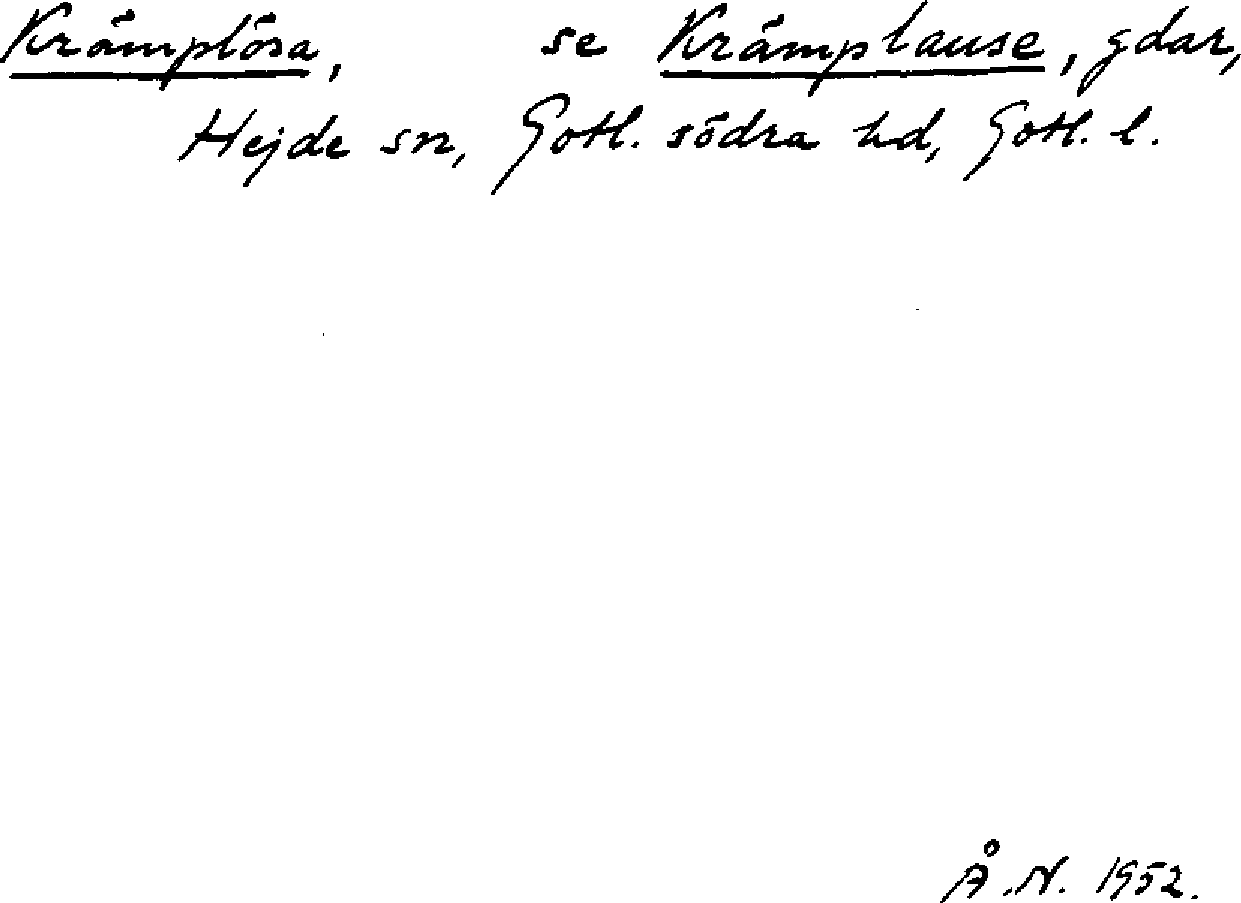 Krämplösa, se Krämplause, gdar,
Hejde sn, Gotl. södra hd, Gotl. l.
Å.N. 1952.